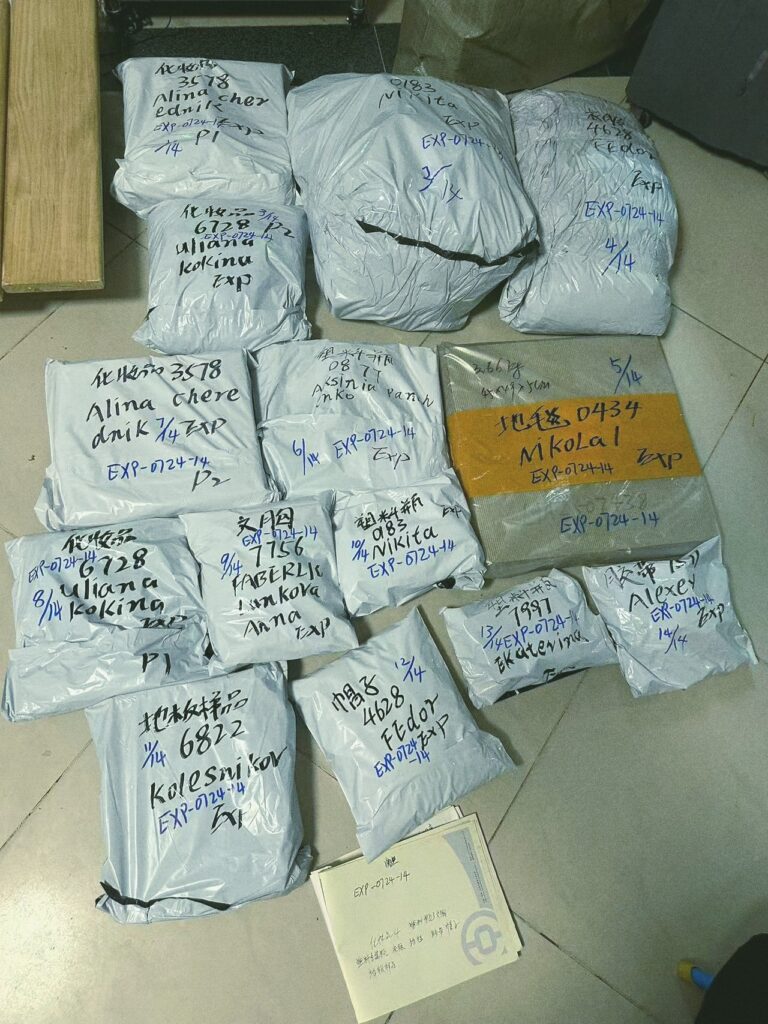 化妆品
3578
Alina cher
ednik Exp
EXP-0724-14
1/14 P1
0183
Nikita
Exp
EXP-0724-14
3/14
4628
FEdor
Exp
EXP-0724-14
4/14
化妆品 3/14
6728 P2
EXP-0724-14
uliana
kokina
Exp
化妆品 3578
Alina chere
dnik 7/14 Exp
EXP-0724-14
P2
塑料瓶
0877
Aksinia
6/14 EXP-0724-14
Exp
5/14
地毯 0434
NikoLaI
EXP-0724-14 Exp
EXP-0724-14
化妆品
EXP-0724-14
6728
8/14 uliana
kokina
Exp
P1
文胸
EXP-0724-14
9/14 7756
FABERLIC
Lunkova
Anna Exp
塑料瓶 Exp
10/14 0183
Nikita
EXP-0724-14
1997
13/14 EXP-0724-14
Ekaterina
胶带
Alexey
EXP-0724-14
Exp
14/14
地板样品
11/14 6822
Kolesnikov
EXP-0724-14
Exp
帽子 12/14
4628
FEdor
EXP-0724 Exp
-14
EXP-0724-14